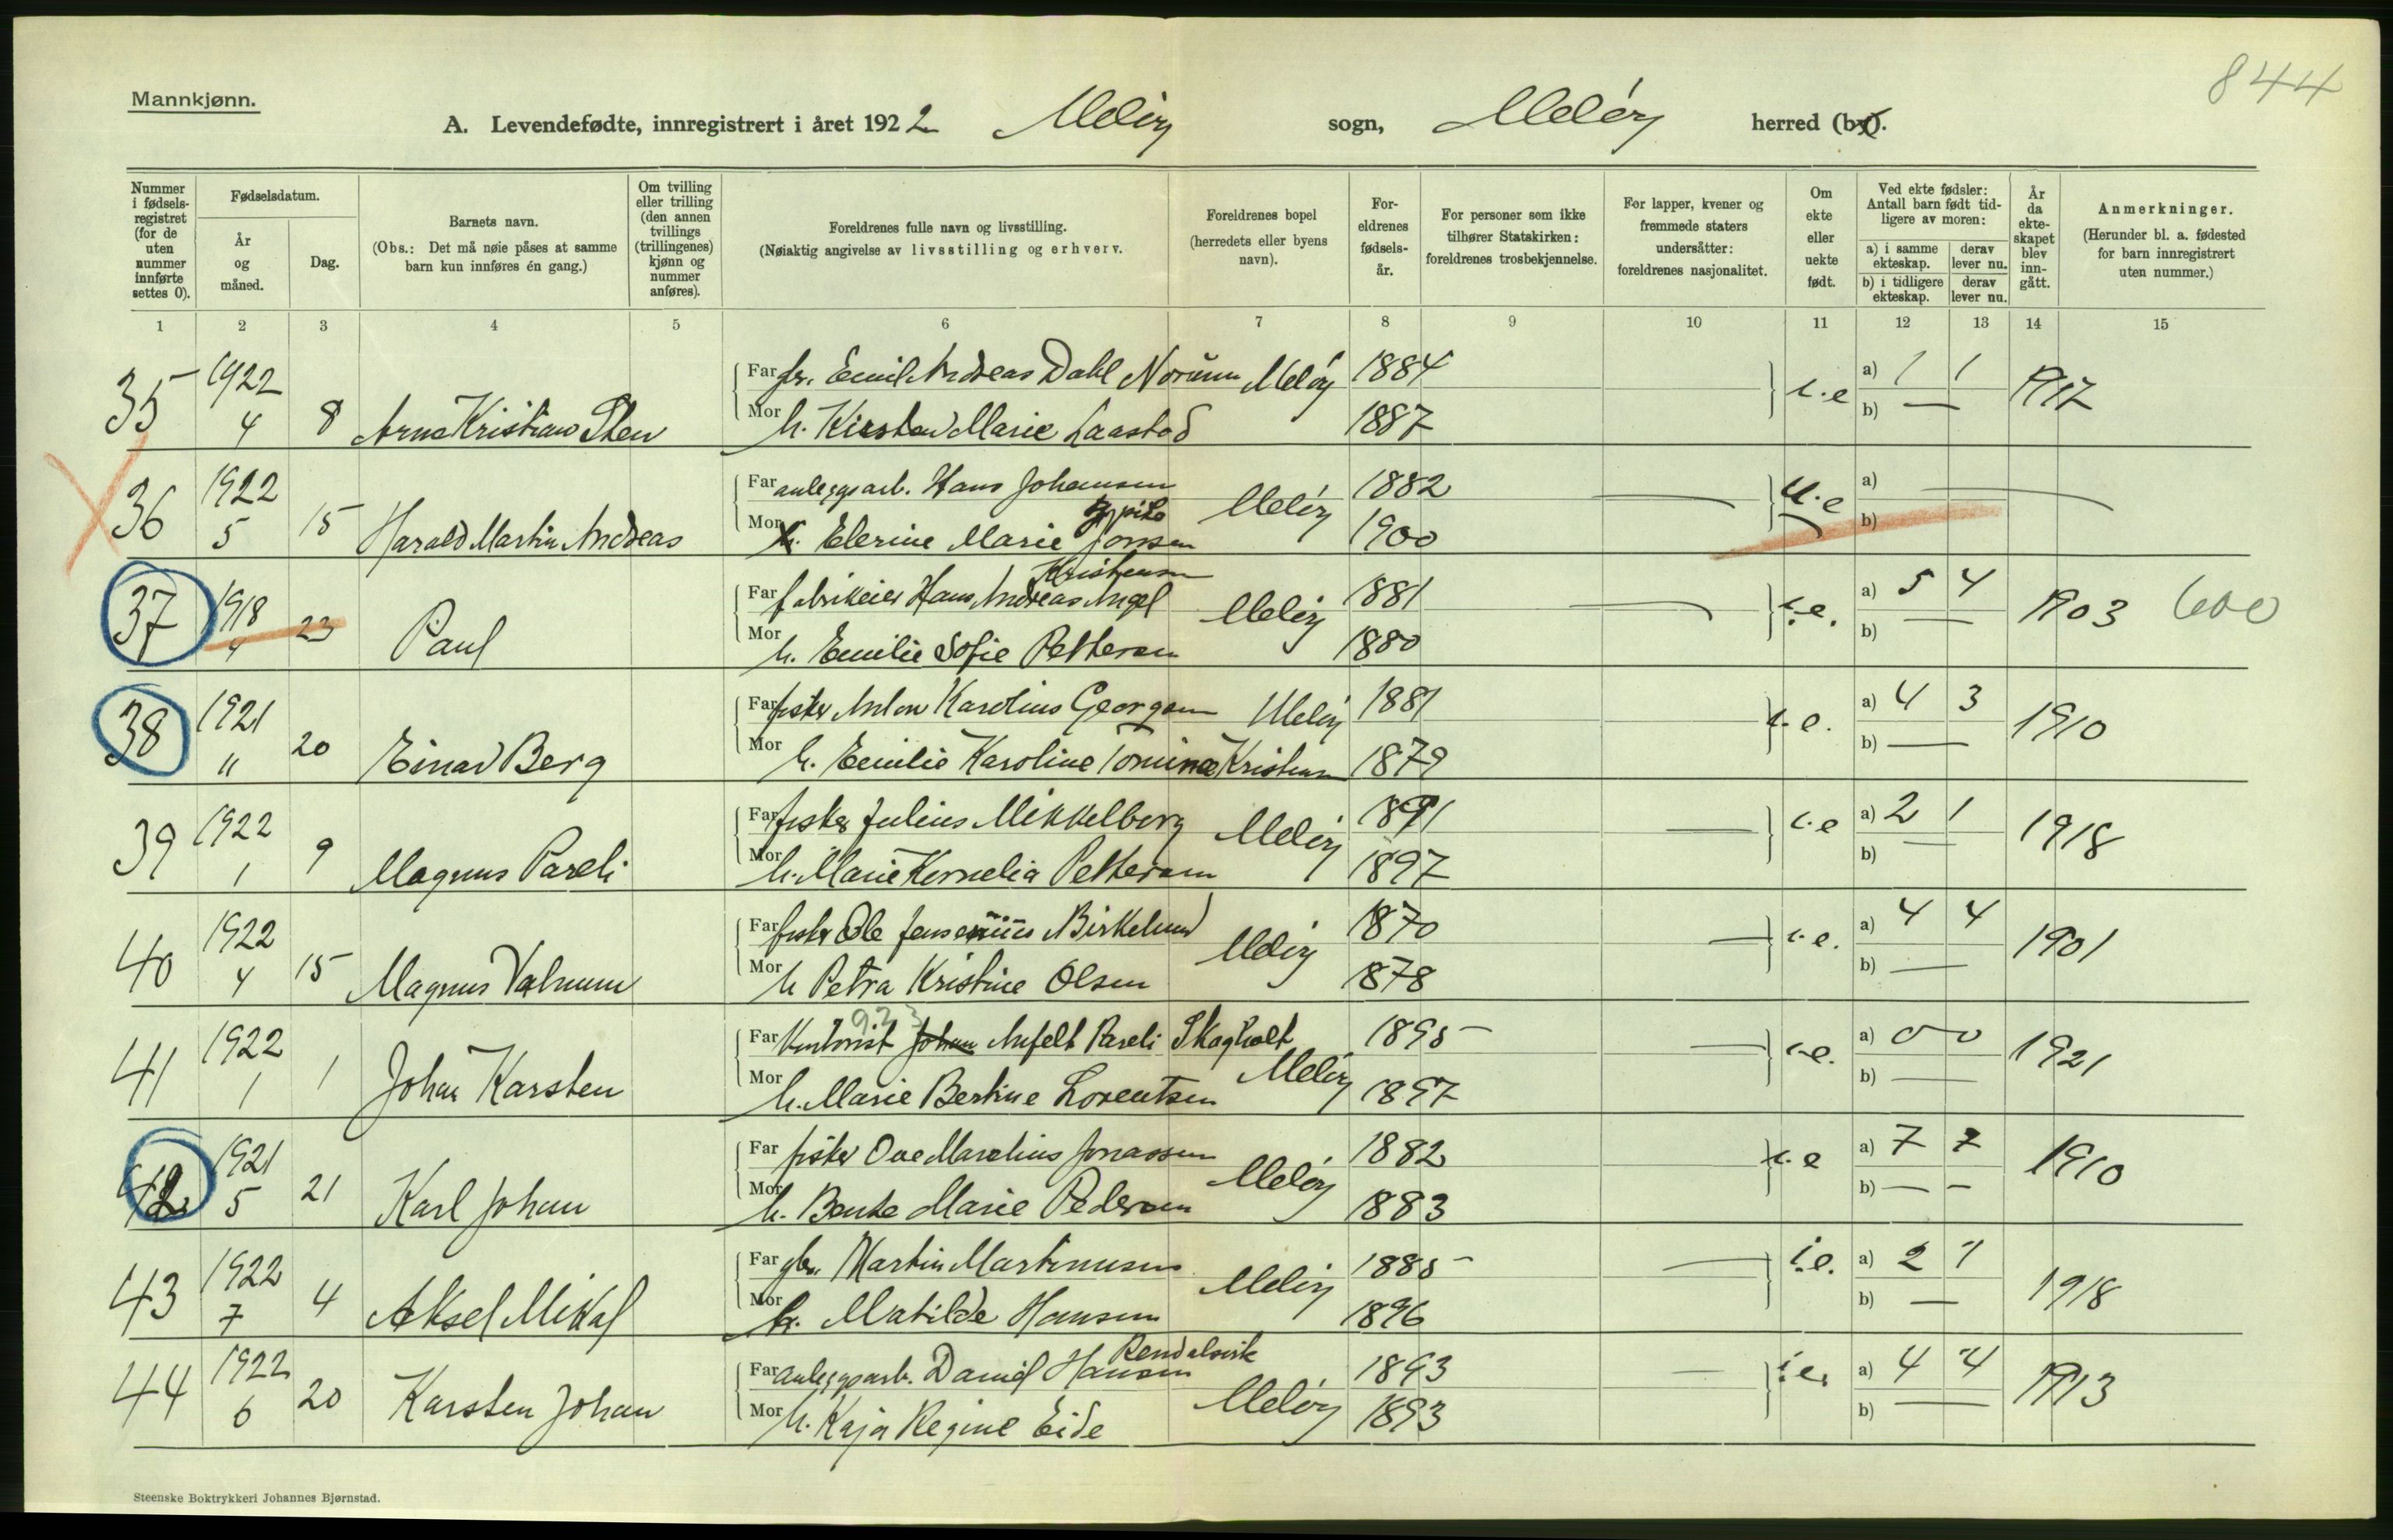 844
Mannkjønn.
A. Levendefødte, innregistrert i året 1922 Meløy sogn, Meløy herred (by).
Nummer i fødsels-registret (for de uten nummer innførte settes 0).
Fødselsdatum.
År og måned.
Dag.
Barnets navn.
(Obs.: Det må nøie påses at samme barn kun innføres én gang.)
Om tvilling eller trilling (den annen tvillings (trillingenes) kjønn og nummer anføres).
Foreldrenes fulle navn og livsstilling.
(Nøiaktig angivelse av livsstilling og erhverv.
Foreldrenes bopel (herredets eller byens navn).
For-eldrenes fødsels-år.
For personer som ikke tilhører Statskirken: foreldrenes trosbekjennelse.
For lapper, kvener og fremmede staters undersåtter: foreldrenes nasjonalitet.
Om ekte eller uekte født.
Ved ekte fødsler: Antall barn født tid-ligere av moren:
a) i samme ekteskap.
derav lever nu.
b) i tidligere ekteskap.
derav lever nu.
År da ekte-skapet blev inn-gått.
Anmerkninger.
(Herunder bl. a. fødested for barn innregistrert uten nummer.)
1 2 3 4 5 6 7 8 9 10 11 12 13 14 15
35 1922 4 8 Arne Kristian Sten
Far Emil Andreas Dahl Norum Meløy 1884
Mor h. Kirsten Marie Laastad 1887
i.e a) 1 1 b) — 1917
36 1922 5 15 Harald Martin Andreas
Far anleggsarb. Hans Johansen Meløy 1882
Mor h. pike Elerine Marie Jonsen 1900
u.e a) b)
37 1918 4 23 Paul
Far fabrikeier Hans Andreas Angel Kristensen Meløy 1881
Mor h. Emilie Sofie Pettersen 1880
i.e. a) 5 4 b) — 1903 600
38 1921 11 20 Einar Berg
Far fisker Anton Karolius Georgsen Meløy 1881
Mor h. Emilie Karoline Tomine Kristensen 1879
i.e. a) 4 3 b) — 1910
39 1922 1 9 Magnus Pareli
Far fisker Julius Mikkelborg Meløy 1891
Mor h. Marie Kornelia Pettersen 1897
i.e a) 2 1 b) — 1918
40 1922 4 15 Magnus Valnum
Far fisker Ole Jensenius Birkelund Meløy 1870
Mor h Petra Kristine Olsen 1878
i.e. a) 4 4 b) — 1901
41 1922 1 1 Johan Karsten
923
Far Kontorist Johan Anfelt Pareli Skagholt 1895
Mor h. Marie Bertine Lorentsen Meløy 1897
i.e. a) 0 0 b) — 1921
42 1921 5 21 Karl Johan
Far fisker Ove Marelius Jonassen Meløy 1882
Mor h. Bente Marie Pedersen 1883
i.e a) 7 7 b) — – 1910
43 1922 7 4 Aksel Mikal
Far gbr. Martin Martinusen Meløy 1885
Mor h. Matilde Hansen 1896
i.e. a) 2 1 b) — 1918
44 1922 6 20 Karsten Johan
Far anleggsarb. Daniel Hansen Rendalsvik Meløy 1893
Mor h. Kaja Regine Eide 1893
i.e. a) 4 4 b) — 1913
Steenske Boktrykkeri Johannes Bjørnstad.